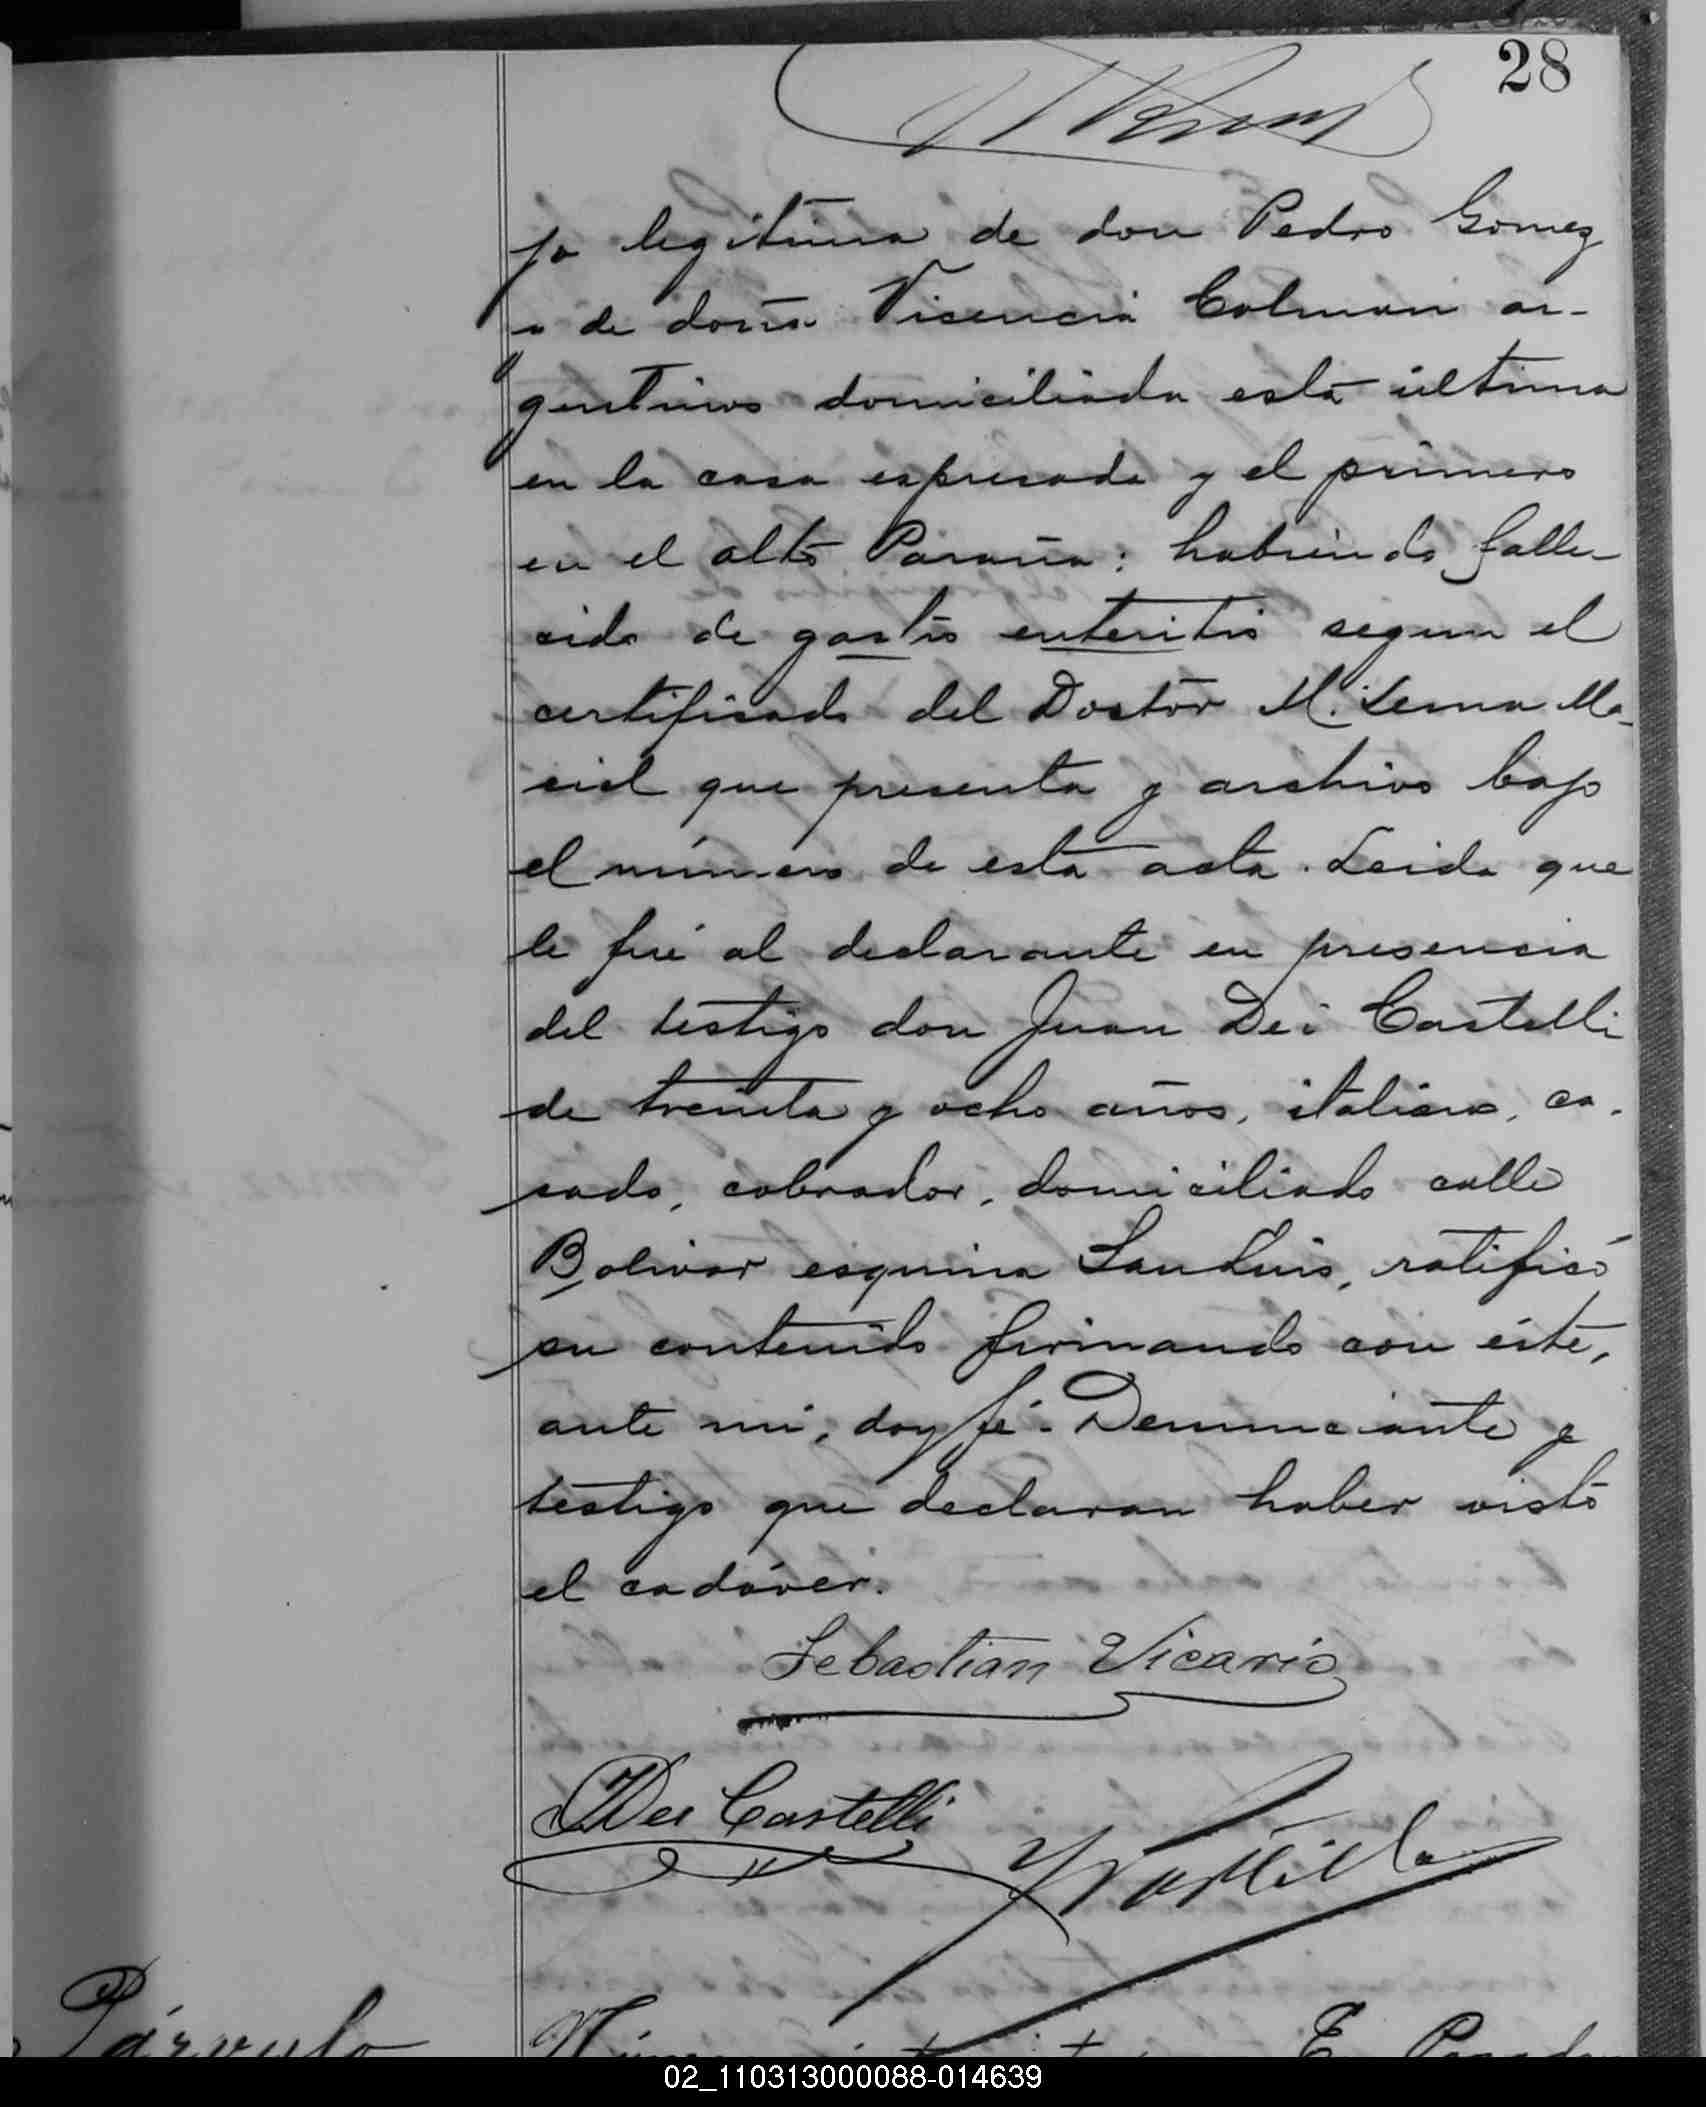 28
ja legitima de don Pedro Gomez
i de doña Vicencia Colman ar-
gentinos domiciliada esta última
en la casa espresada y el primero
en el alto Paraná: habiendo falle-
cido de gastro enteritis segun el
certificado del Doctor M. Lema Ma-
ciel que presenta y archivo bajo
el número de esta acta. Leida que
le fué al declarante en presencia
del testigo don Juan Dei Castelli
de treinta y ocho años, italiano, ca-
sado, cobrador, domiciliado calle
Bolivar esquina San Luis, ratificó
su contenido firmando con éste,
ante mi, doy fé. Denunciante y
testigo que declaran haber visto
el cadáver.
Sebastian Vicario
Dei Castelli
Párvulo
02_110313000088-014639